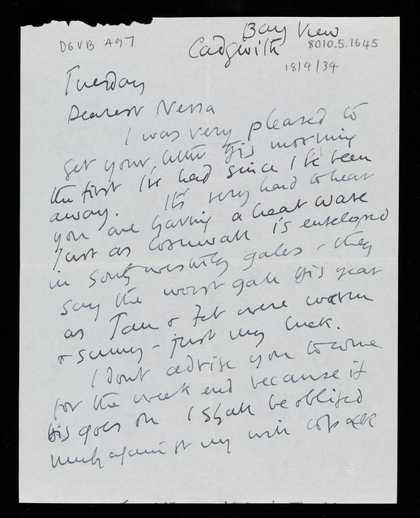 DGVB A97
Bay View
Cadgwith
8010.5.1645
18/9/34
Tuesday
Dearest Nessa
I was very pleased to
get your letter this morning
the first I've had since I've been
away. It's very hard to hear
you are having a heat wave
just as Cornwall is enveloped
in South westerly gales - they
say the worst gale this year
as Jan & Feb were warm
& sunny - just my luck.
I don't advise you to come
for the week end because if
this goes on I shall be obliged
much against my will to